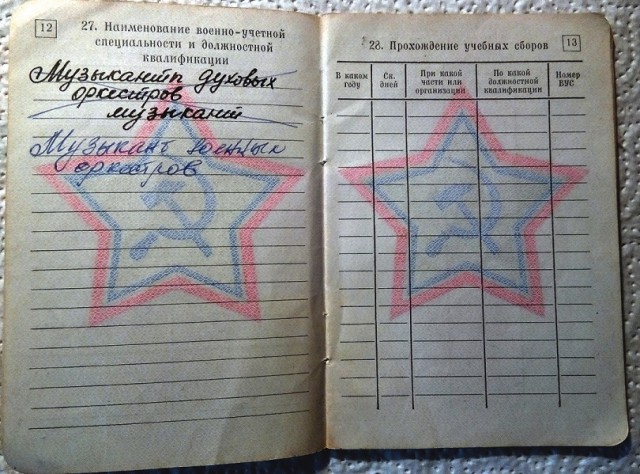 12
27. Наименование военно-учетной
специальности и должностной
квалификации
Музыкант духовых
оркестров
музыкант
Музыкант военных
оркестров
28. Прохождение учебных сборов
13
В каком году
Ск. дней
При какой части или организации
По какой должностной квалификации
Номер ВУС